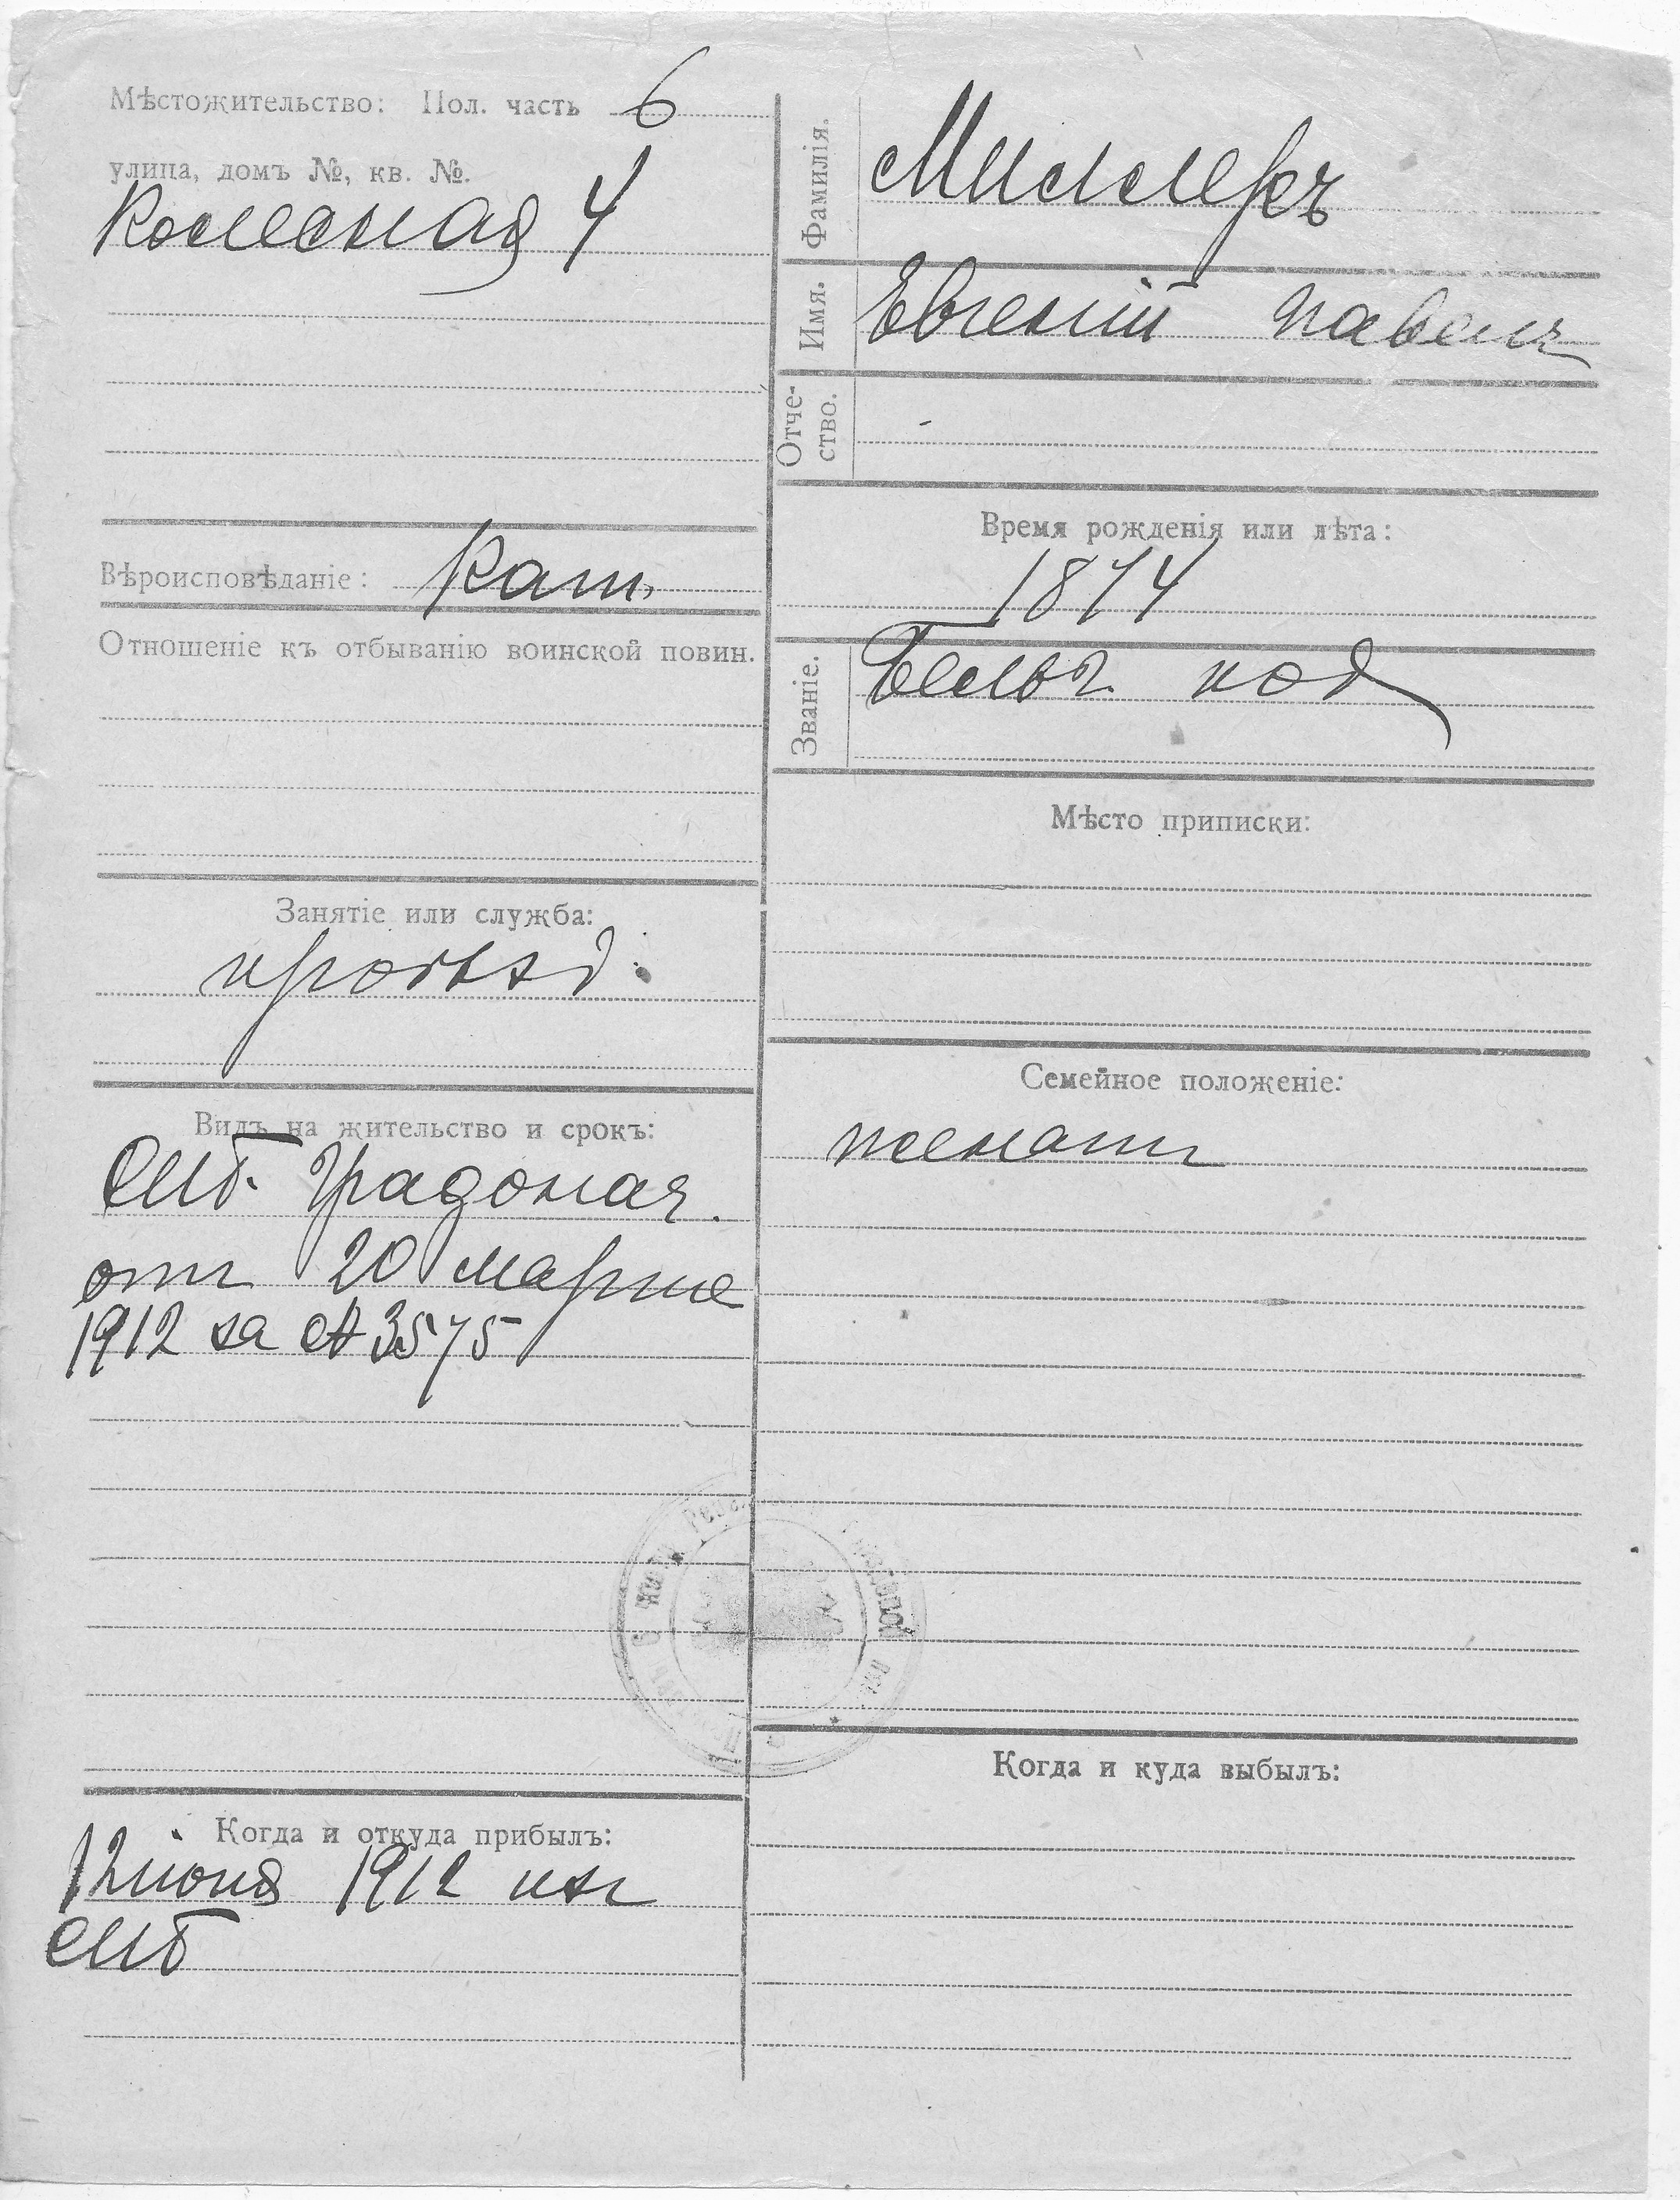 Мѣстожительство: Пол. часть 6
улица, домъ №, кв. №.
Колесная 4
Вѣроисповѣданіе: Кат.
Отношеніе къ отбыванію воинской повин.
Занятіе или служба:
проѣзд.
Видъ на жительство и срокъ:
Спб. Градонач.
отъ 20 Марта
1912 за № 3575
Когда и откуда прибылъ:
12 іюня 1912 изъ
СПБ
Фамилія. Миллеръ
Имя. Евгеній Павелъ
Отче-
ство. -
Время рожденія или лѣта:
1874
Званіе. Бельг. под
Мѣсто приписки:
Семейное положеніе:
женатъ
Когда и куда выбылъ: